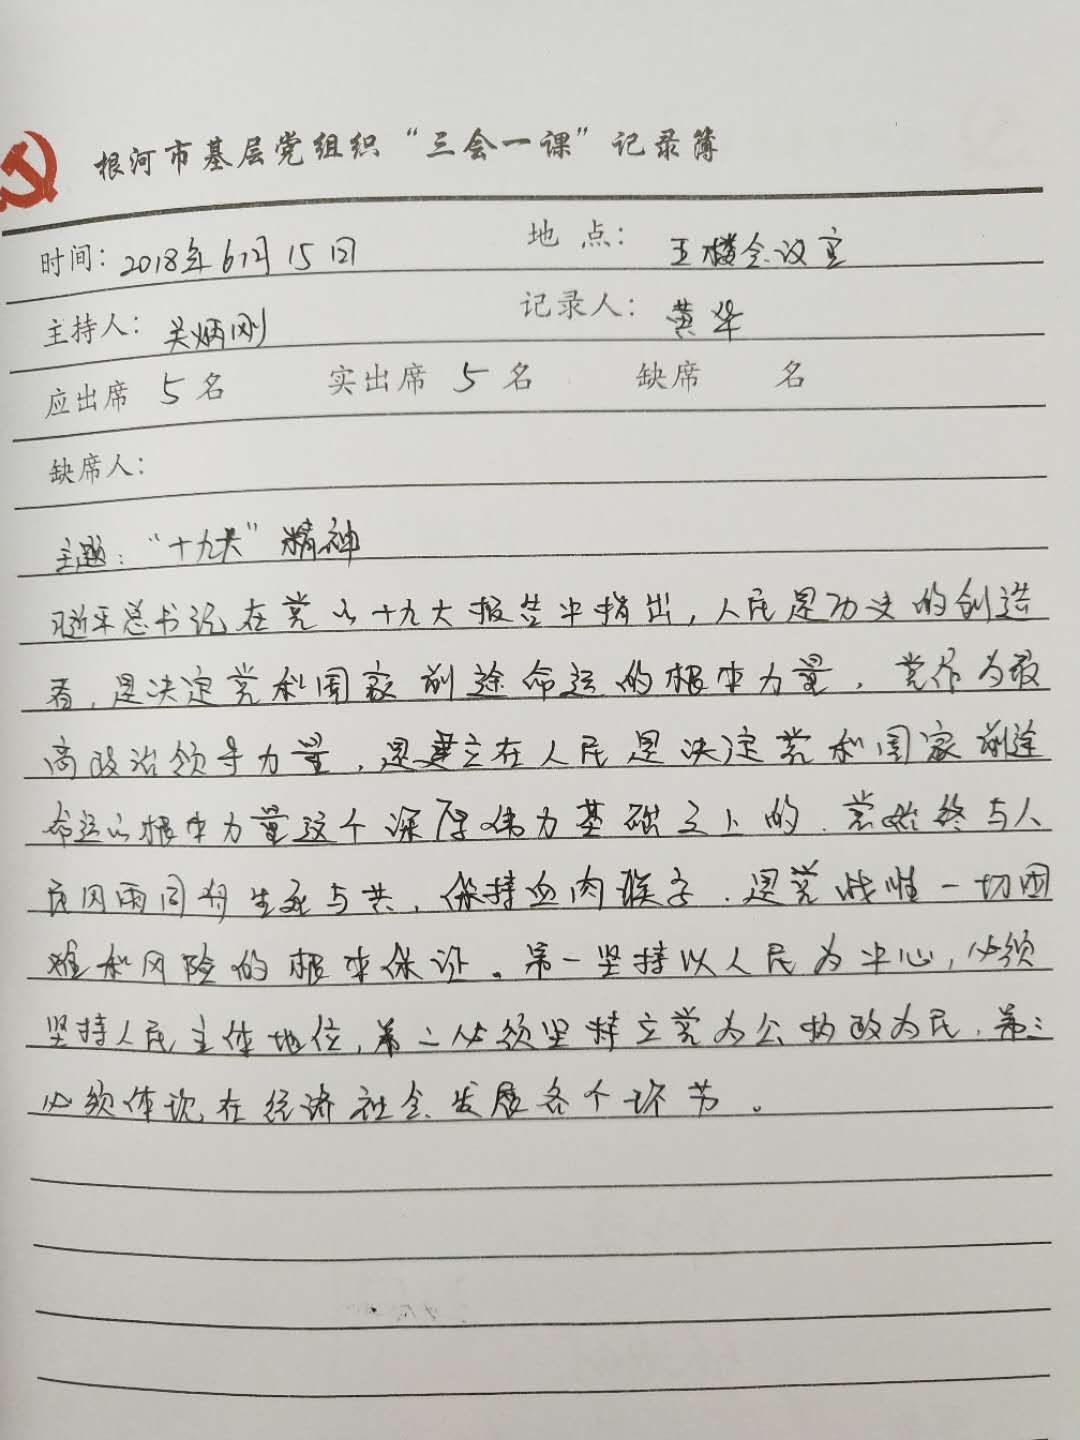 根河市基层党组织“三会一课”记录簿
时间：2018年6月15日 地点：五楼会议室
主持人：关炳刚 记录人：黄华
应出席 5 名 实出席 5 名 缺席 名
缺席人：
主题：“十九大”精神
习近平总书记在党的十九大报告中指出，人民是历史的创造
者，是决定党和国家前途命运的根本力量，党作为最
高政治领导力量，是建立在人民是决定党和国家前途
命运的根本力量这个深厚伟力基础之上的，党始终与人
民风雨同舟生死与共，保持血肉联系，是党战胜一切困
难和风险的根本保证。第一坚持以人民为中心，必须
坚持人民主体地位，第二必须坚持立党为公执政为民，第三
必须体现在经济社会发展各个环节。